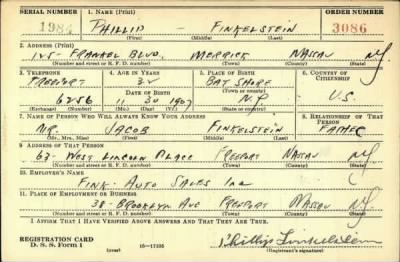 SERIAL NUMBER 1. NAME (Print) ORDER NUMBER
1984 PHILLIP FINKELSTEIN 3086
(First) (Middle) (Last)
2. ADDRESS (Print)
125- FRANKEL BLVD. MERRICK NASSAU N.Y.
(Number and street or R. F. D. number) (Town) (County) (State)
3. TELEPHONE 4. AGE IN YEARS 5. PLACE OF BIRTH 6. COUNTRY OF CITIZENSHIP
FREEPORT 32 BAY SHORE
DATE OF BIRTH (Town or county)
6256 11 30 1907 N.Y. U.S.
(Exchange) (Number) (Mo.) (Day) (Yr.) (State or country)
7. NAME OF PERSON WHO WILL ALWAYS KNOW YOUR ADDRESS 8. RELATIONSHIP OF THAT PERSON
MR. JACOB FINKELSTEIN FATHER
(Mr., Mrs., Miss) (First) (Middle) (Last)
9. ADDRESS OF THAT PERSON
63- WEST LINCOLN PLACE FREEPORT NASSAU N.Y.
(Number and street or R. F. D. number) (Town) (County) (State)
10. EMPLOYER'S NAME
FINK. AUTO SALES INC
11. PLACE OF EMPLOYMENT OR BUSINESS
38- BROOKLYN AVE FREEPORT NASSAU N.Y.
(Number and street or R. F. D. number) (Town) (County) (State)
I AFFIRM THAT I HAVE VERIFIED ABOVE ANSWERS AND THAT THEY ARE TRUE.
REGISTRATION CARD
D. S. S. Form 1 (over) 16-17105 Phillip Finkelstein
(Registrant's signature)